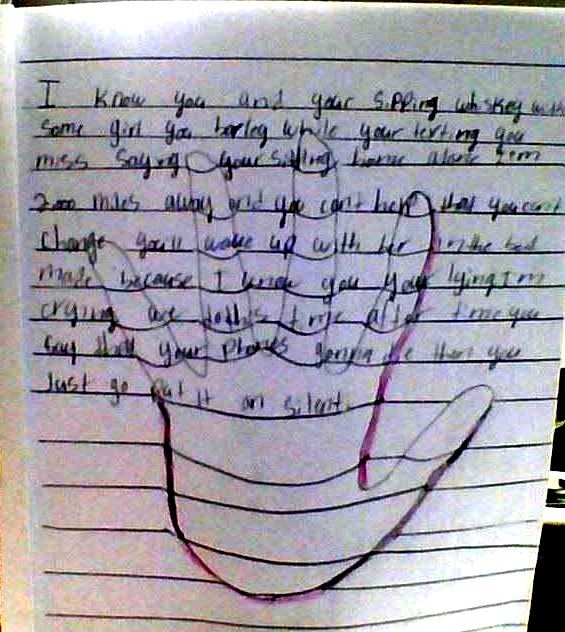 I know you and your sipping whiskey with
some girl you barley while your texting you
miss saying your sitting home alone I'm
2,000 miles away and you can't help that you cant
change you'll wake up with her in the bed
made because I know you your lying I'm
crying are time after time you
say that your phones gonna die then you
Just go put it on silent.